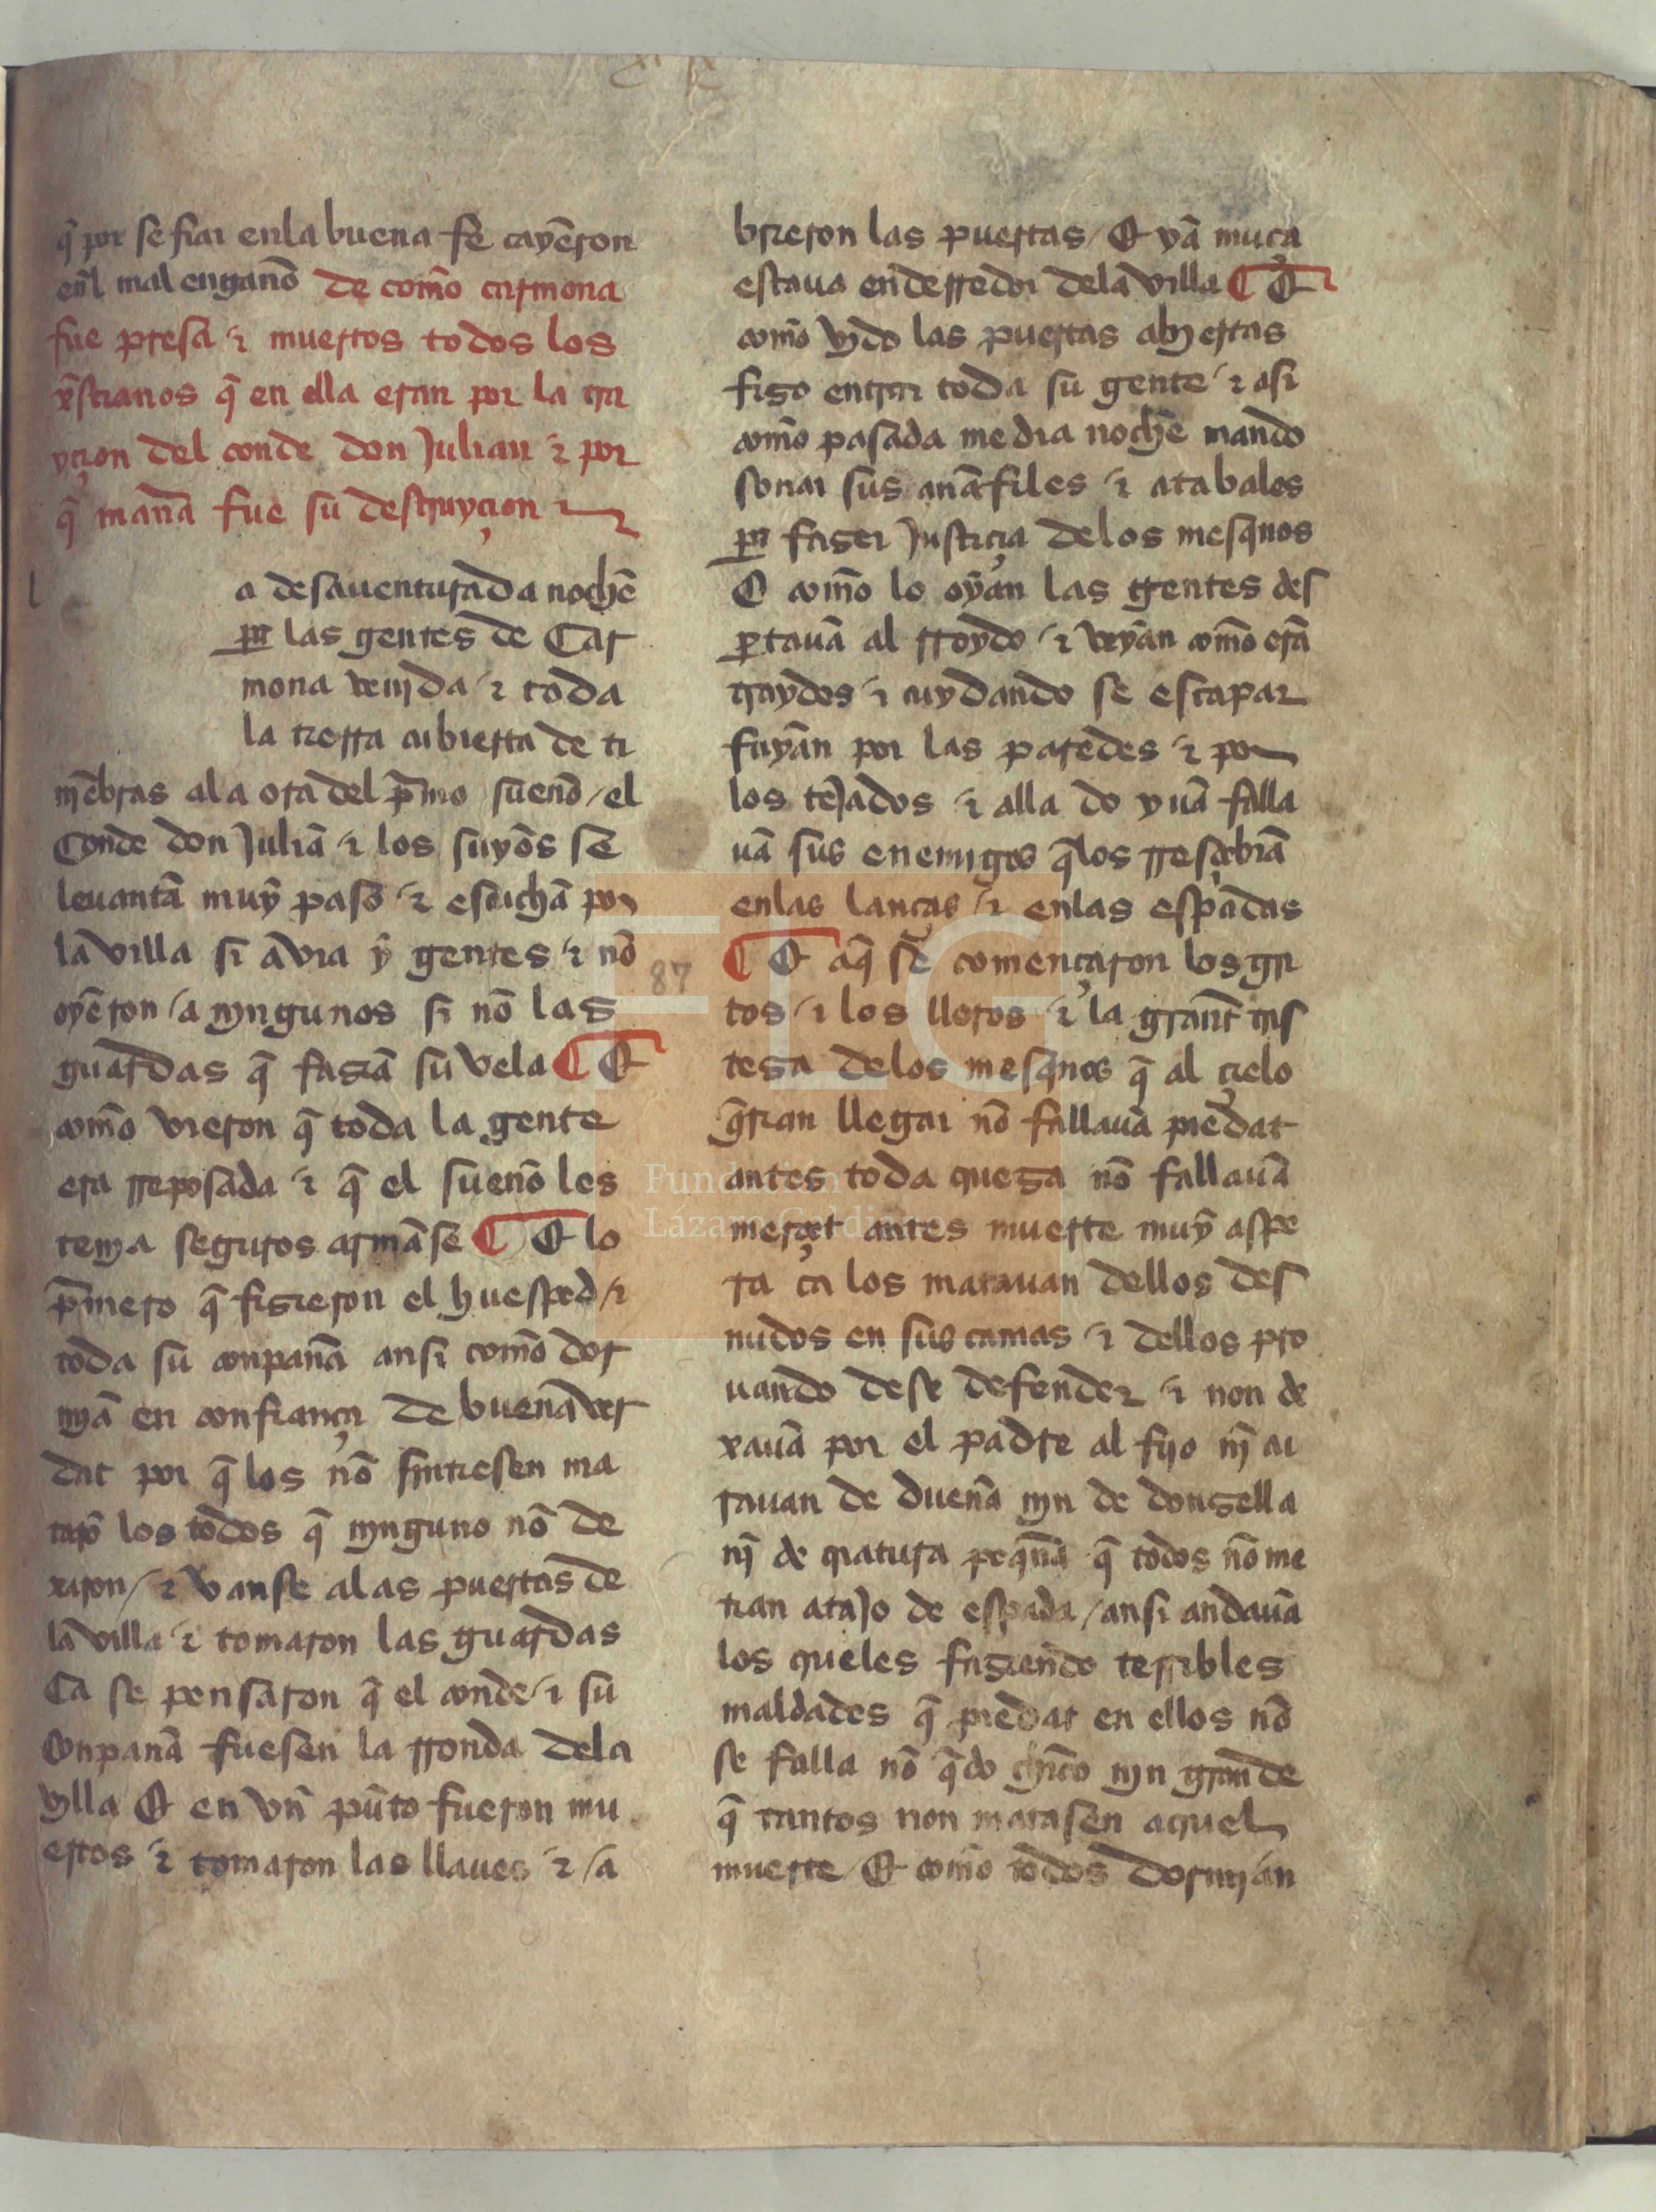 q̃ por se fiar enla buena fe cayerõn
eñl mal engaño de como carmona
fue presa ⁊ muertos todos los
xp̃stianos q̃ en ella eran por la tra
yçion del conde don Julian ⁊ por
q̃ maña fue su destruyçion
l
a desauenturada noche
para las gentes de Car
mona venjda ⁊ toda
la tierra cubierta de ti
njẽbras ala ora del p̃mo sueño / el
Conde don Juliã ⁊ los suyos se
leuantã muy paso ⁊ escuchã por
la villa si avia y gentes ⁊ nõ
oyerõn / a njngunos si nõ las
guardas q̃ fasiã su vela ¶ E
como vieron q̃ toda la gente
era rreposada ⁊ q̃ el sueño les
tenja seguros armãse ¶ E lo
p̃mero q̃ fisieron el huesped / ⁊
toda su conpaña ansi como dor
mjã en confiança de buena ver
dat por q̃ los nõ sintiesen ma
tarõ los todos q̃ njnguno nõ de
xaron / ⁊ vanse alas puertas de
la villa ⁊ tomaron las guardas
Ca se pensaron q̃ el conde ⁊ su
Conpaña fuesen la rronda dela
villa E en vñ pũto fueron mu
ertos ⁊ tomaron las llaues ⁊ / a
brieron las puertas / E yã muça
estaua enderredor dela villa ¶ E
como vido las puertas abiertas
fiso entrar toda su gente ⁊ asi
como pasada media noche mando
sonar sus anafiles ⁊ atabales
para faser Justiçia delos mesqnos
E como lo oyan las gentes des
p̱tauã al rroydo ⁊ veyan como erã
traydos ⁊ cuydando se escapar
fuyan por las paredes ⁊ por
los teJados ⁊ alla do yuã falla
uã sus enemigos q̃los rresçebiã
enlas lanças ⁊ enlas espadas
¶ E aq̃ se començaron los gri
tos ⁊ los lloros ⁊ la grant tris
tesa delos mesqnos q̃ al çielo
q̃rian llegar nõ fallauã piedat
antes toda quexa nõ fallauã
merçet antes muerte muy aspe
ra ca los matauan dellos des
nudos en sus camas ⁊ dellos pro
uando dese defender ⁊ non de
xauã por el padre al fijo nj̃ cu
rauan de dueña njn de donsella
nj̃ de criatura peq̃ña q̃ todos nõ me
tian ataJo de espada / ansi andauã
los crueles fasiendo terribles
maldades q̃ piedat en ellos nõ
se falla nõ q̃do chico njn grande
q̃ tantos non matasen aquel
muerte E como todos dormjan
87
FLG
Fundación
Lázaro Galdiano